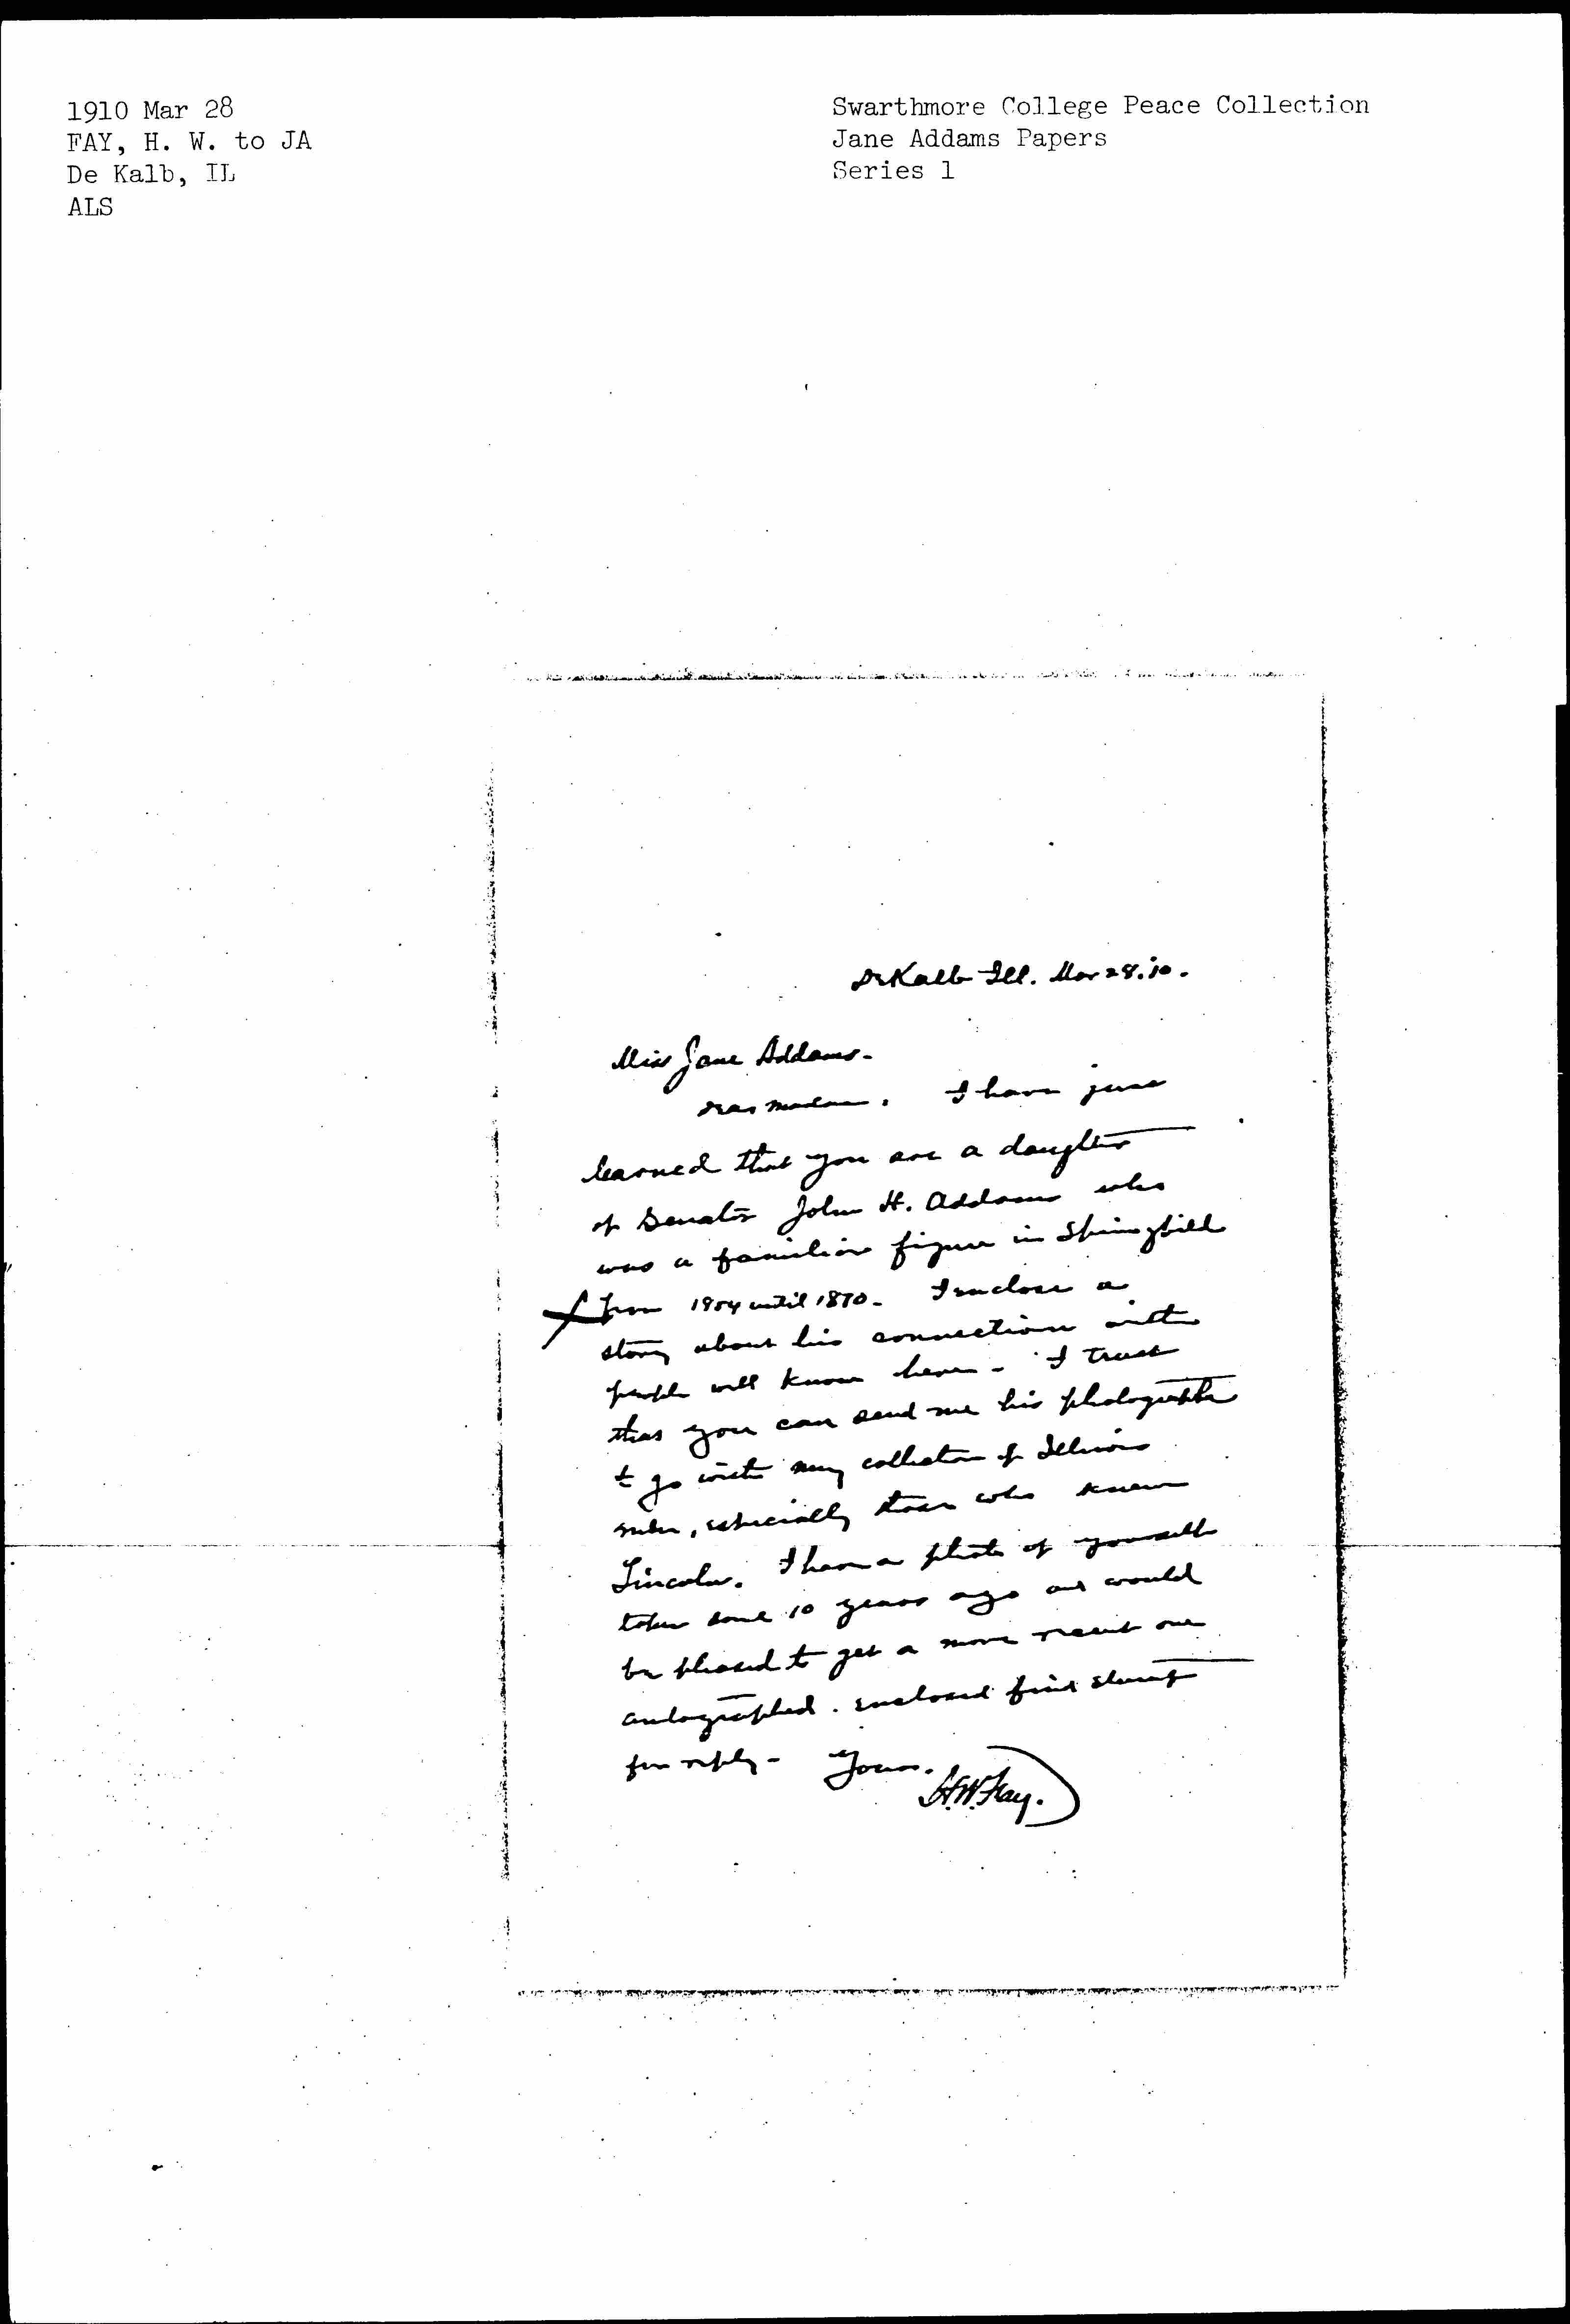 1910 Mar 28
FAY, H. W. to JA
De Kalb, IL
ALS
Swarthmore College Peace Collection
Jane Addams Papers
Series 1
DeKalb Ill. Mar 28.'10.
Miss Jane Addams-
Dear Madam. I have just
learned that you are a daughter
of Senator John H. Addams who
was a familiar figure in Springfield
from 1854 until 1870- I enclose a
story about his connection with
people well know here- I trust
that you can send me his photograph
to go with my collection of Illinois
men, especially those who knew
Lincoln. I have a photo of yourself
taken some 10 years ago and would
be pleased to get a more recent one
autographed. Enclosed find stamp
for reply- Yours.
H.W. Fay.